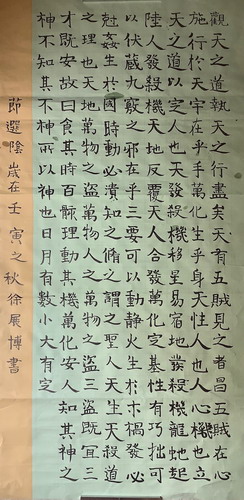 觀天之道執天之行盡矣天有五賊見之者昌五賊在心
施行於天宇在乎手萬化生乎身天性人也人心機也立
天之道以定人也天發殺機移星易宿地發殺機龍蛇起
陸人發殺機天地反覆天人合發萬化定基性有巧拙可
以伏藏九竅之邪在乎三要可以動靜火生於木禍發必
尅姦生於國時動必潰知之脩之謂之聖人天生天殺道
之理也天地萬物之盜萬物人之萬物之盜三盜既宜三
才既安故曰食其時百骸理動其機萬化安人知其神之
神不知其不神所以神也日月有數小大有定
即選陰歲在壬寅之秋徐展博書